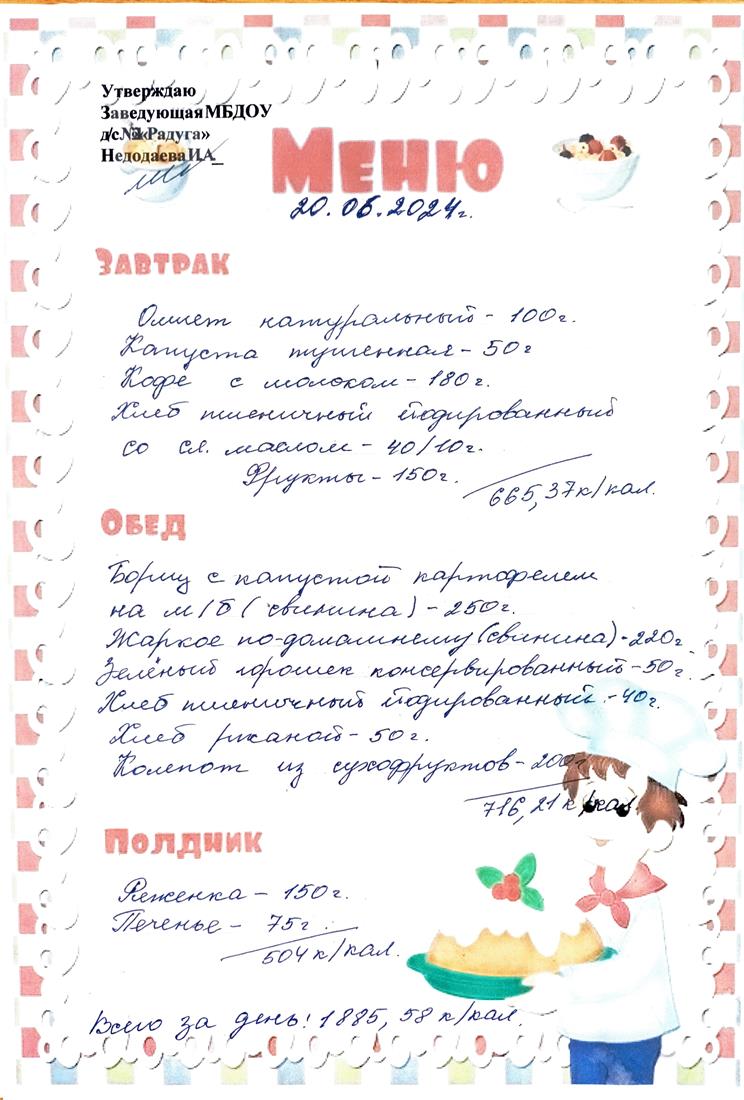 Утверждаю
Заведующая МБДОУ
д/с «Радуга»
Недодаева И.А_
Меню
20.06.2024г.
Завтрак
Омлет натуральный - 100г.
Капуста тушенная - 50г
Кофе с молоком - 180г.
Хлеб пшеничный йодированный
со сл. маслом - 40/10г.
Фрукты - 150г.
665,37к/кал.
Обед
Борщ с капустой картофелем
на м/б (свинина) - 250г.
Жаркое по-домашнему (свинина) - 220г
Зелёный горошек консервированный - 50г.
Хлеб пшеничный йодированный - 40г.
Хлеб ржаной - 50г.
Компот из сухофруктов - 200г
716,21 к/кал
Полдник
Ряженка - 150г.
Печенье - 75г.
504 к/кал.
Всего за день: 1885,58 к/кал.